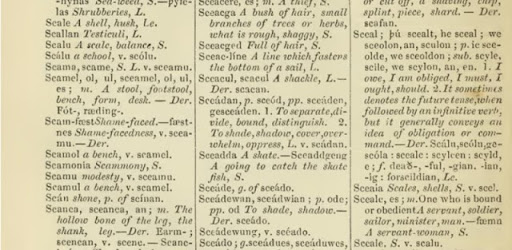 -hynas Sea-weed, — pýe-
las Shrubberies, L.
Scale A shell, husk, Le.
Sceallan Testiculi, L.
Scalu A scale, balance, S.
Scálu a school, v. scólu.
Scama, scame, S. L. v. sceamu.
Scamel, ol, ul, sceamel, ol, ul,
es; m. A stool, footstool,
bench, form, desk. — Der.
Fót-, ræding-.
Scam-fæst Shame-faced.—fæst-
nes Shame-facedness, v. scea-
mu.—Der.
Scamol a bench, v. scamel.
Scamonia Scammony, S.
Scamu modesty, v. sceamu.
Scamul a bench, v. scamel.
Scán shone, p. of scínan.
Scanca, sceanca, an; m. The
hollow bone of the leg, the
shank, leg.—Der. Earm-;
scencan, v. scenc. — Scanc-
Sceacere, es; m. A thief, S.
Sceacga A bush of hair, small
branches of trees or herbs,
what is rough, shaggy, S.
Sceacged Full of hair, S.
Sceac-líne A line which fastens
the bottom of a sail, L.
Sceacul, scacul A shackle, L.—
Der. scacan.
Sceádan, p. sceód, pp. sceáden,
gesceáden. 1. To separate, di-
vide, bound, distinguish. 2.
To shade, shadow, cover, over-
whelm, oppress, L. v. scádan.
Sceadda A skate.—Sceaddgeng
A going to catch the skate
fish, S.
Sceáde, g. of sceádo.
Sceádewan, sceádwian; p. ode;
pp. od To shade, shadow.—
Der. sceádo.
Sceádewung, v. scéado.
Sceádo; g. sceádues, sceáduwes,
or cut off, a shaving, chip,
splint, piece, shard. — Der.
scafan.
Sceal; þú scealt, he sceal; we
sceolon, an, sculon; p. ic sceo-
olde, we sceoldon; sub. scyle,
scile, we scylon, an, en. 1. I
owe, I am obliged, I must, I
ought, should. 2. It sometimes
denotes the future tense, when
followed by an infinitive verb,
but it generally conveys an
idea of obligation or com-
mand.—Der. Scálu, scóln, ge-
scóla: sceale: scylcen; scyld,
e; f. deað-, -ful, -gian, -ian,
-ig: forscildian, Le.
Sceala Scales, shells, S. v. scel.
Scealc, es; m. One who is bound
or obedient. A servant, soldier,
sailor, minister, man. —fæmna
A servant-woman, S.
Sceale, S. v. scalu.